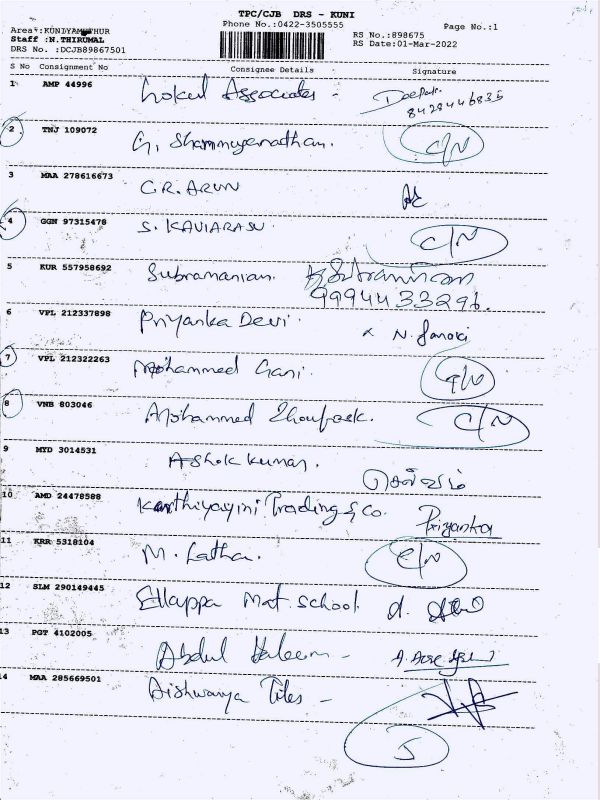 TPC/CJB DRS - KUNI
Phone No.:0422-3505555
Page No.:1
Area :KUNIYAMUTHUR
Staff :N.THIRUMAL
DRS No. :DCJB89867501
RS No.:898675
RS Date:01-Mar-2022
S No Consignment No Consignee Details Signature
1 AMP 44996 Gokul Associates - Deepak.
8428446835
2 TNJ 109072 G. Shanmuganathan. C/N
3 MAA 278616673 C.R. ARUN
4 GGN 97315478 S. KAVIARASU C/N
5 KUR 557958692 Subramanian.
9994433296.
6 VPL 212337898 Priyanka Devi. x N. Janaki
7 VPL 212322263 Mohammed Gani. C/N
8 VNB 803046 Mohammed C/N
9 MYD 3014531 Ashok kumar. செல்வம்
10 AMD 24478588 Karthiyayini Trading & Co. Priyanka
11 KRR 5318104 M. Latha. C/N
12 SLM 290149445 Ellappa Mat. School d.
13 PGT 4102005 Abdul Haleem - A.
14 MAA 285669501 Aishwarya Tiles -
5